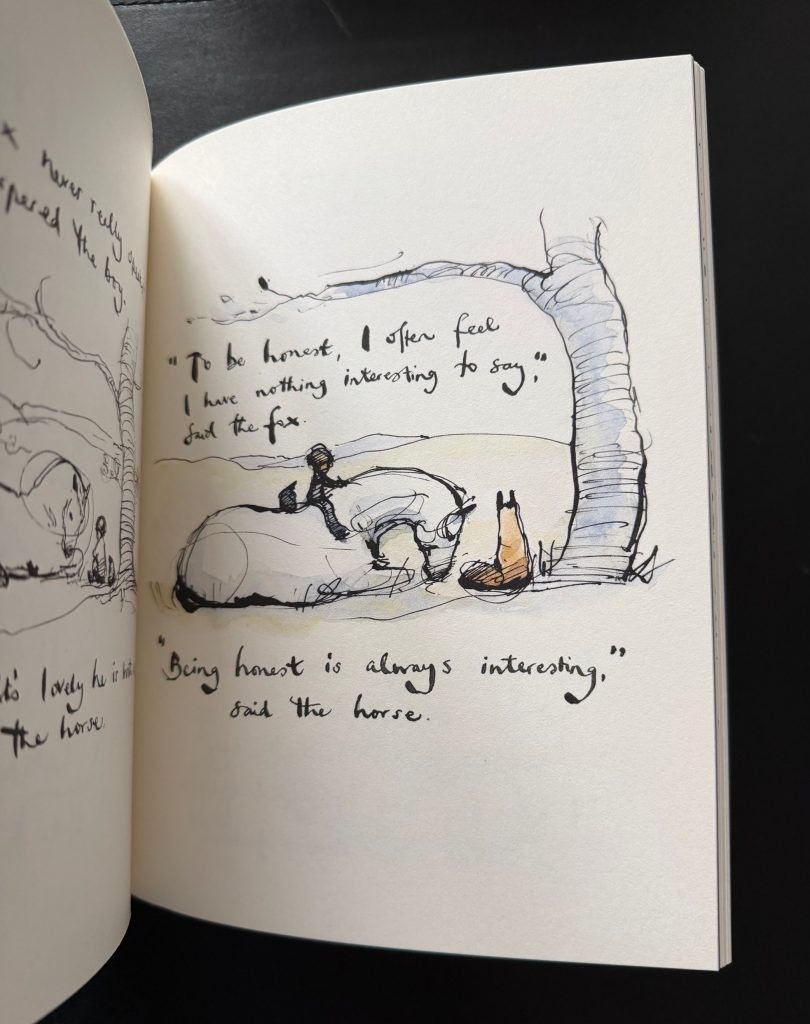 never really
the boy.
it's lovely he is
the horse.
"To be honest, I often feel
I have nothing interesting to say,"
said the fox.
"Being honest is always interesting,"
said the horse.